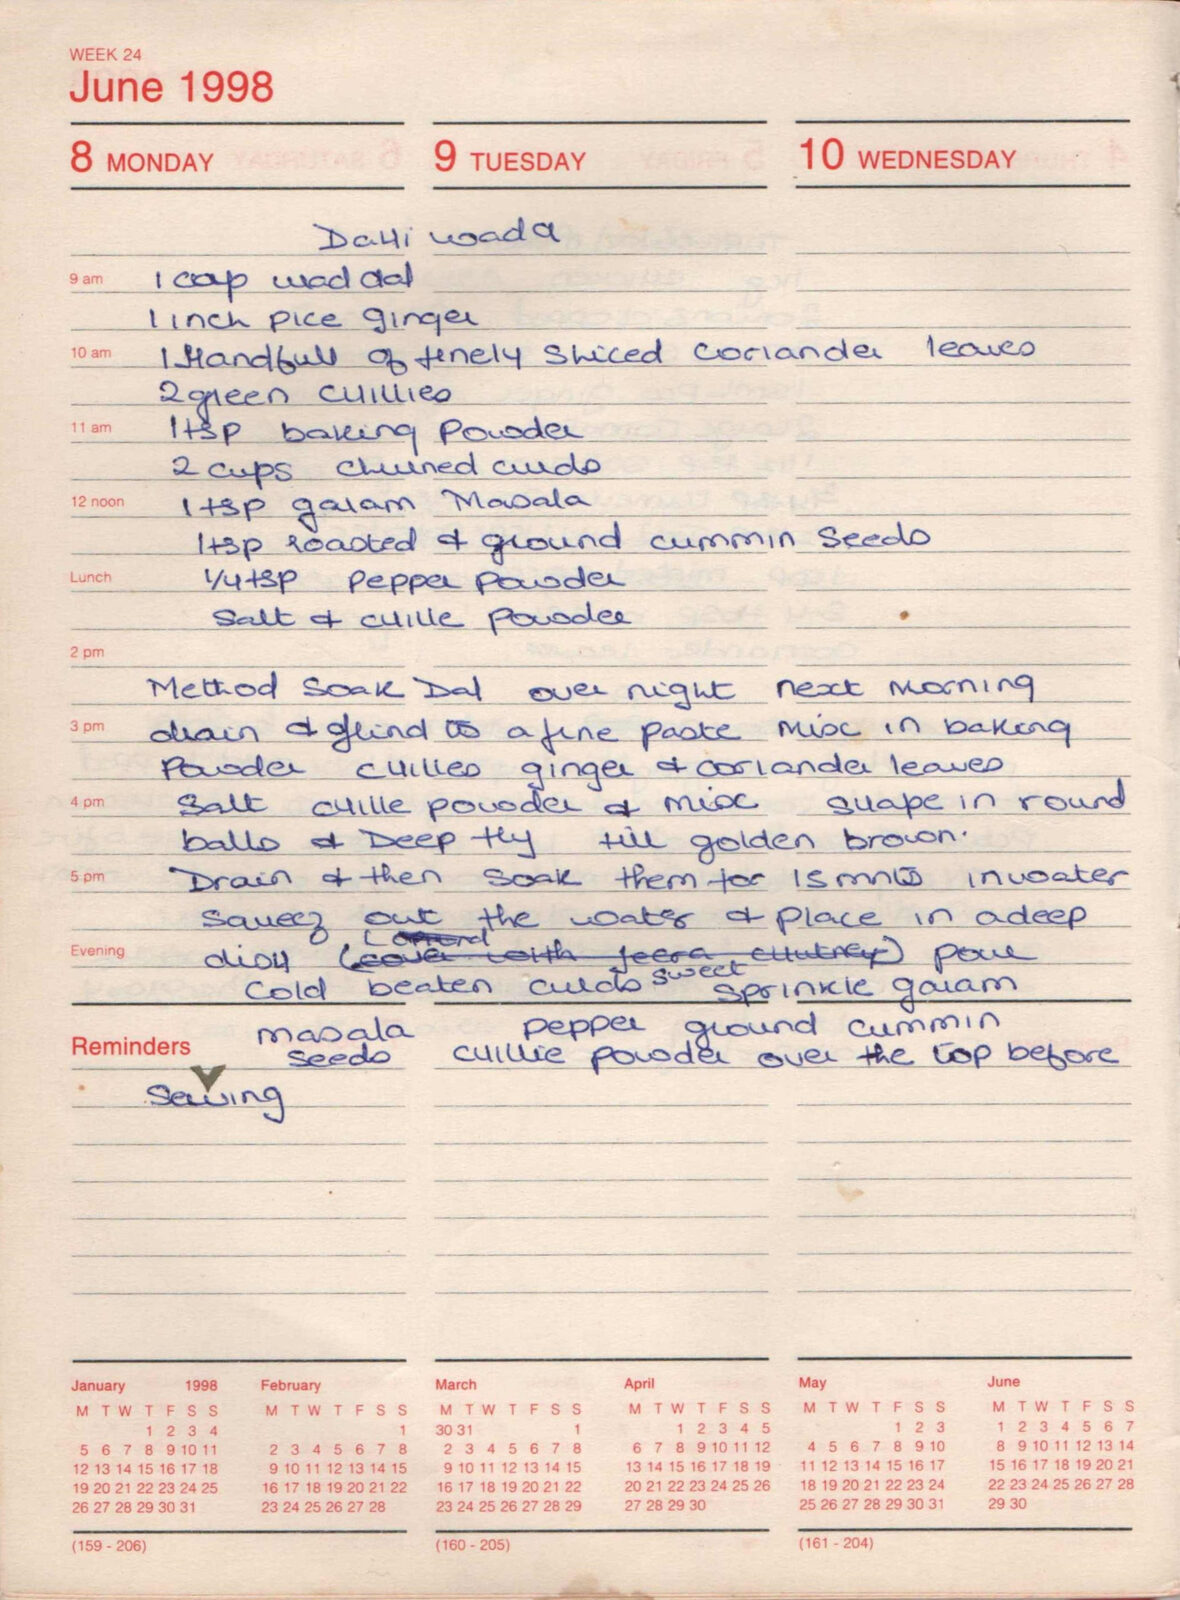 WEEK 24
June 1998
8 MONDAY
9 TUESDAY
10 WEDNESDAY
Dahi wada
9 am 1 cup wad dal
1 inch pice ginger
10 am 1 Handfull of finely sliced coriander leaves
2 green chillies
11 am 1 tsp baking Powder
2 cups churned curds
12 noon 1 tsp garam Masala
1 tsp roasted & ground cummin seeds
Lunch 1/4 tsp Pepper Powder
Salt & chille Powder
2 pm
Method Soak Dal over night next morning
3 pm drain & grind to a fine paste Mix in baking
Powder chillies ginger & coriander leaves
4 pm Salt chille powder & mix shape in round
balls & Deep fry till golden brown.
5 pm Drain & then soak them for 15 mnts in water
squeez out the water & place in a deep
Evening dish (cover with jeera chutney) pour
cold beaten curds sweet sprinkle garam
masala pepper ground cummin
Reminders
seeds chillie powder over the top before
serving
January 1998
M T W T F S S
1 2 3 4
5 6 7 8 9 10 11
12 13 14 15 16 17 18
19 20 21 22 23 24 25
26 27 28 29 30 31
February
M T W T F S S
1
2 3 4 5 6 7 8
9 10 11 12 13 14 15
16 17 18 19 20 21 22
23 24 25 26 27 28
March
M T W T F S S
30 31 1
2 3 4 5 6 7 8
9 10 11 12 13 14 15
16 17 18 19 20 21 22
23 24 25 26 27 28 29
April
M T W T F S S
1 2 3 4 5
6 7 8 9 10 11 12
13 14 15 16 17 18 19
20 21 22 23 24 25 26
27 28 29 30
May
M T W T F S S
1 2 3
4 5 6 7 8 9 10
11 12 13 14 15 16 17
18 19 20 21 22 23 24
25 26 27 28 29 30 31
June
M T W T F S S
1 2 3 4 5 6 7
8 9 10 11 12 13 14
15 16 17 18 19 20 21
22 23 24 25 26 27 28
29 30
(159 - 206)
(160 - 205)
(161 - 204)